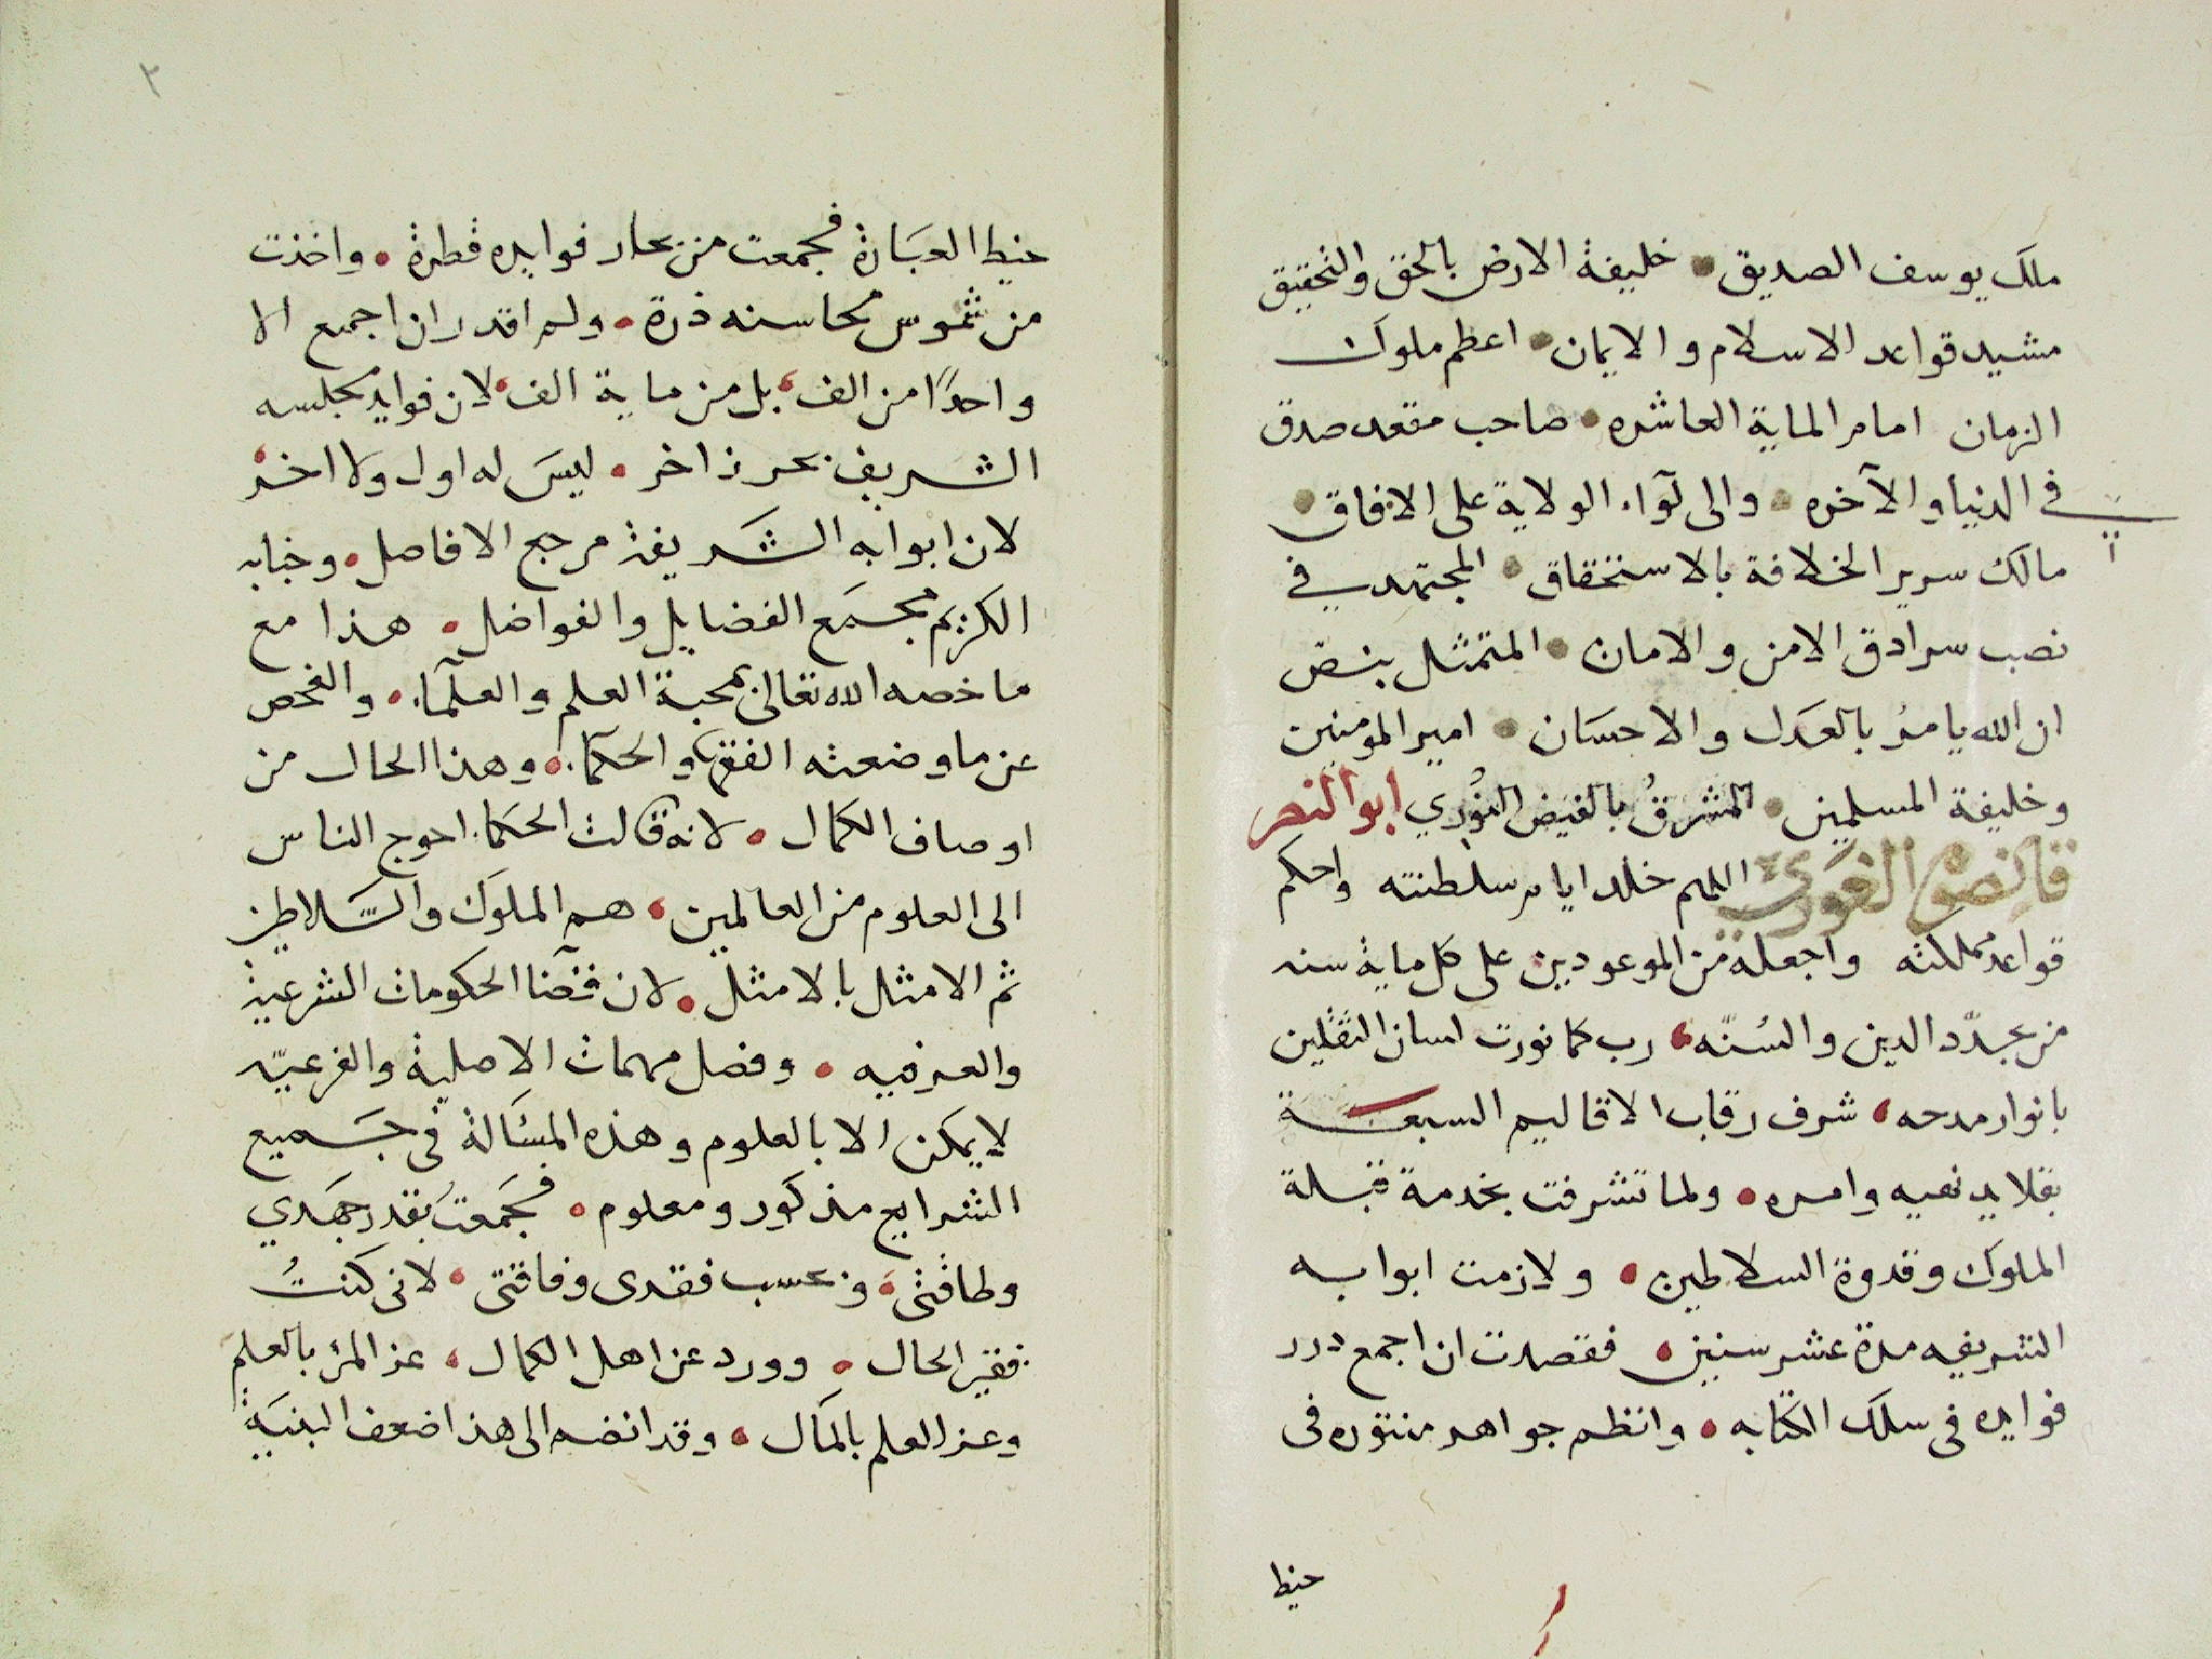 ملك يوسف الصديق • خليفة الارض بالحق والتحقيق
مشيد قواعد الاسلام والايمان • اعظم ملوك
الزمان امام الماية العاشره • صاحب مقعد صدق
في الدنيا والآخره • والى لوآء الولاية على الافاق •
مالك سرير الخلافة بالاستحقاق • المجتهد في
نصب سرادق الامن والامان • المتمثل بنص
ان الله يامرُ بالعَدل والاحسَان • امير المومنين
وخليفة المسلمين • المشرفُ بالفيض النوُري ابو النصر
قانصوه الغوري اللهم خلد ايام سلطنته واحكم
قواعد مملكته واجعله من الموعودين على كل ماية سنه
من يجدّد الدين والسُنّه، رب كما نورت لسان الثقلين
بانوار مدحه، شرف رقاب الاقاليم السبعـة
بقلايد نهيه وامره • ولما تشرفت بخدمة قبلة
الملوك وقدوة السلاطين • ولازمت ابوابه
الشريفه مدة عشر سنين • فقصدت ان اجمع درر
فوايده فى سلك الكتابه • وانظم جواهر منثوره فى
خيط
٢
خيط العبَارة فجمعت من بحار فوايده قطرة • واخذت
من شموس محاسنه ذرة • ولم اقدر ان اجمع الا
واحدًا من الف، بل من ماية الف، لان فوايد مجلسه
الشريف بحر زاخر • ليسَ له اول ولا اخر،
لان ابوابه الشَريفة مرجع الافاضل • وجنابه
الكريم مجمَع الفضايل والفواضل • هذا مع
ما خصه الله تعالى بمحبة العلم والعلمآء • والفحص
عن ما وضعته الفقهآ والحكمآء • وهذا الحال من
اوصاف الكمال • لانه قالت الحكماء احوج الناس
الى العلوم من العالمين، هم الملوك والسَّلاطين
ثم الامثل بالامثل • لان قضآنا الحكومات الشرعية
والعرفيه • وفصل مهمات الاصلية والفرعيّه
لا يمكن الا بالعلوم وهذه المسَالة فى جَميع
الشرايع مذكور ومعلوم • فجَمعتُ بقدر جهَدي
وطاقتى، وبحسب فقدى وفاقتى • لانى كنتُ
فقير الحال • وورد عن اهل الكمال، عز المرء بالعلم
وعز العلم بالمَال • وقد انضم الى هذا ضعف البنيَة